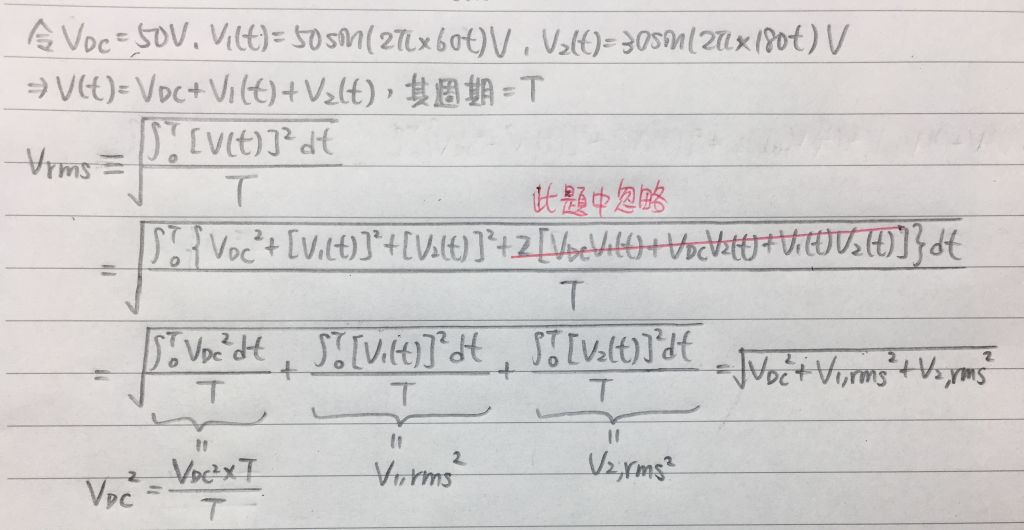 令 VDC=50V, V1(t)=50sin(2π×60t)V, V2(t)=30sin(2π×180t)V
⇒V(t)=VDC+V1(t)+V2(t), 其週期=T
Vrms≡√(∫₀ᵀ[V(t)]²dt/T)
此題中忽略
=√(∫₀ᵀ{VDC²+[V1(t)]²+[V2(t)]²+2[VDCV1(t)+VDCV2(t)+V1(t)V2(t)]}dt/T)
=√(∫₀ᵀVDC²dt/T+∫₀ᵀ[V1(t)]²dt/T+∫₀ᵀ[V2(t)]²dt/T)=√(VDC²+V1,rms²+V2,rms²)
= = =
VDC²=VDC²×T/T V1,rms² V2,rms²